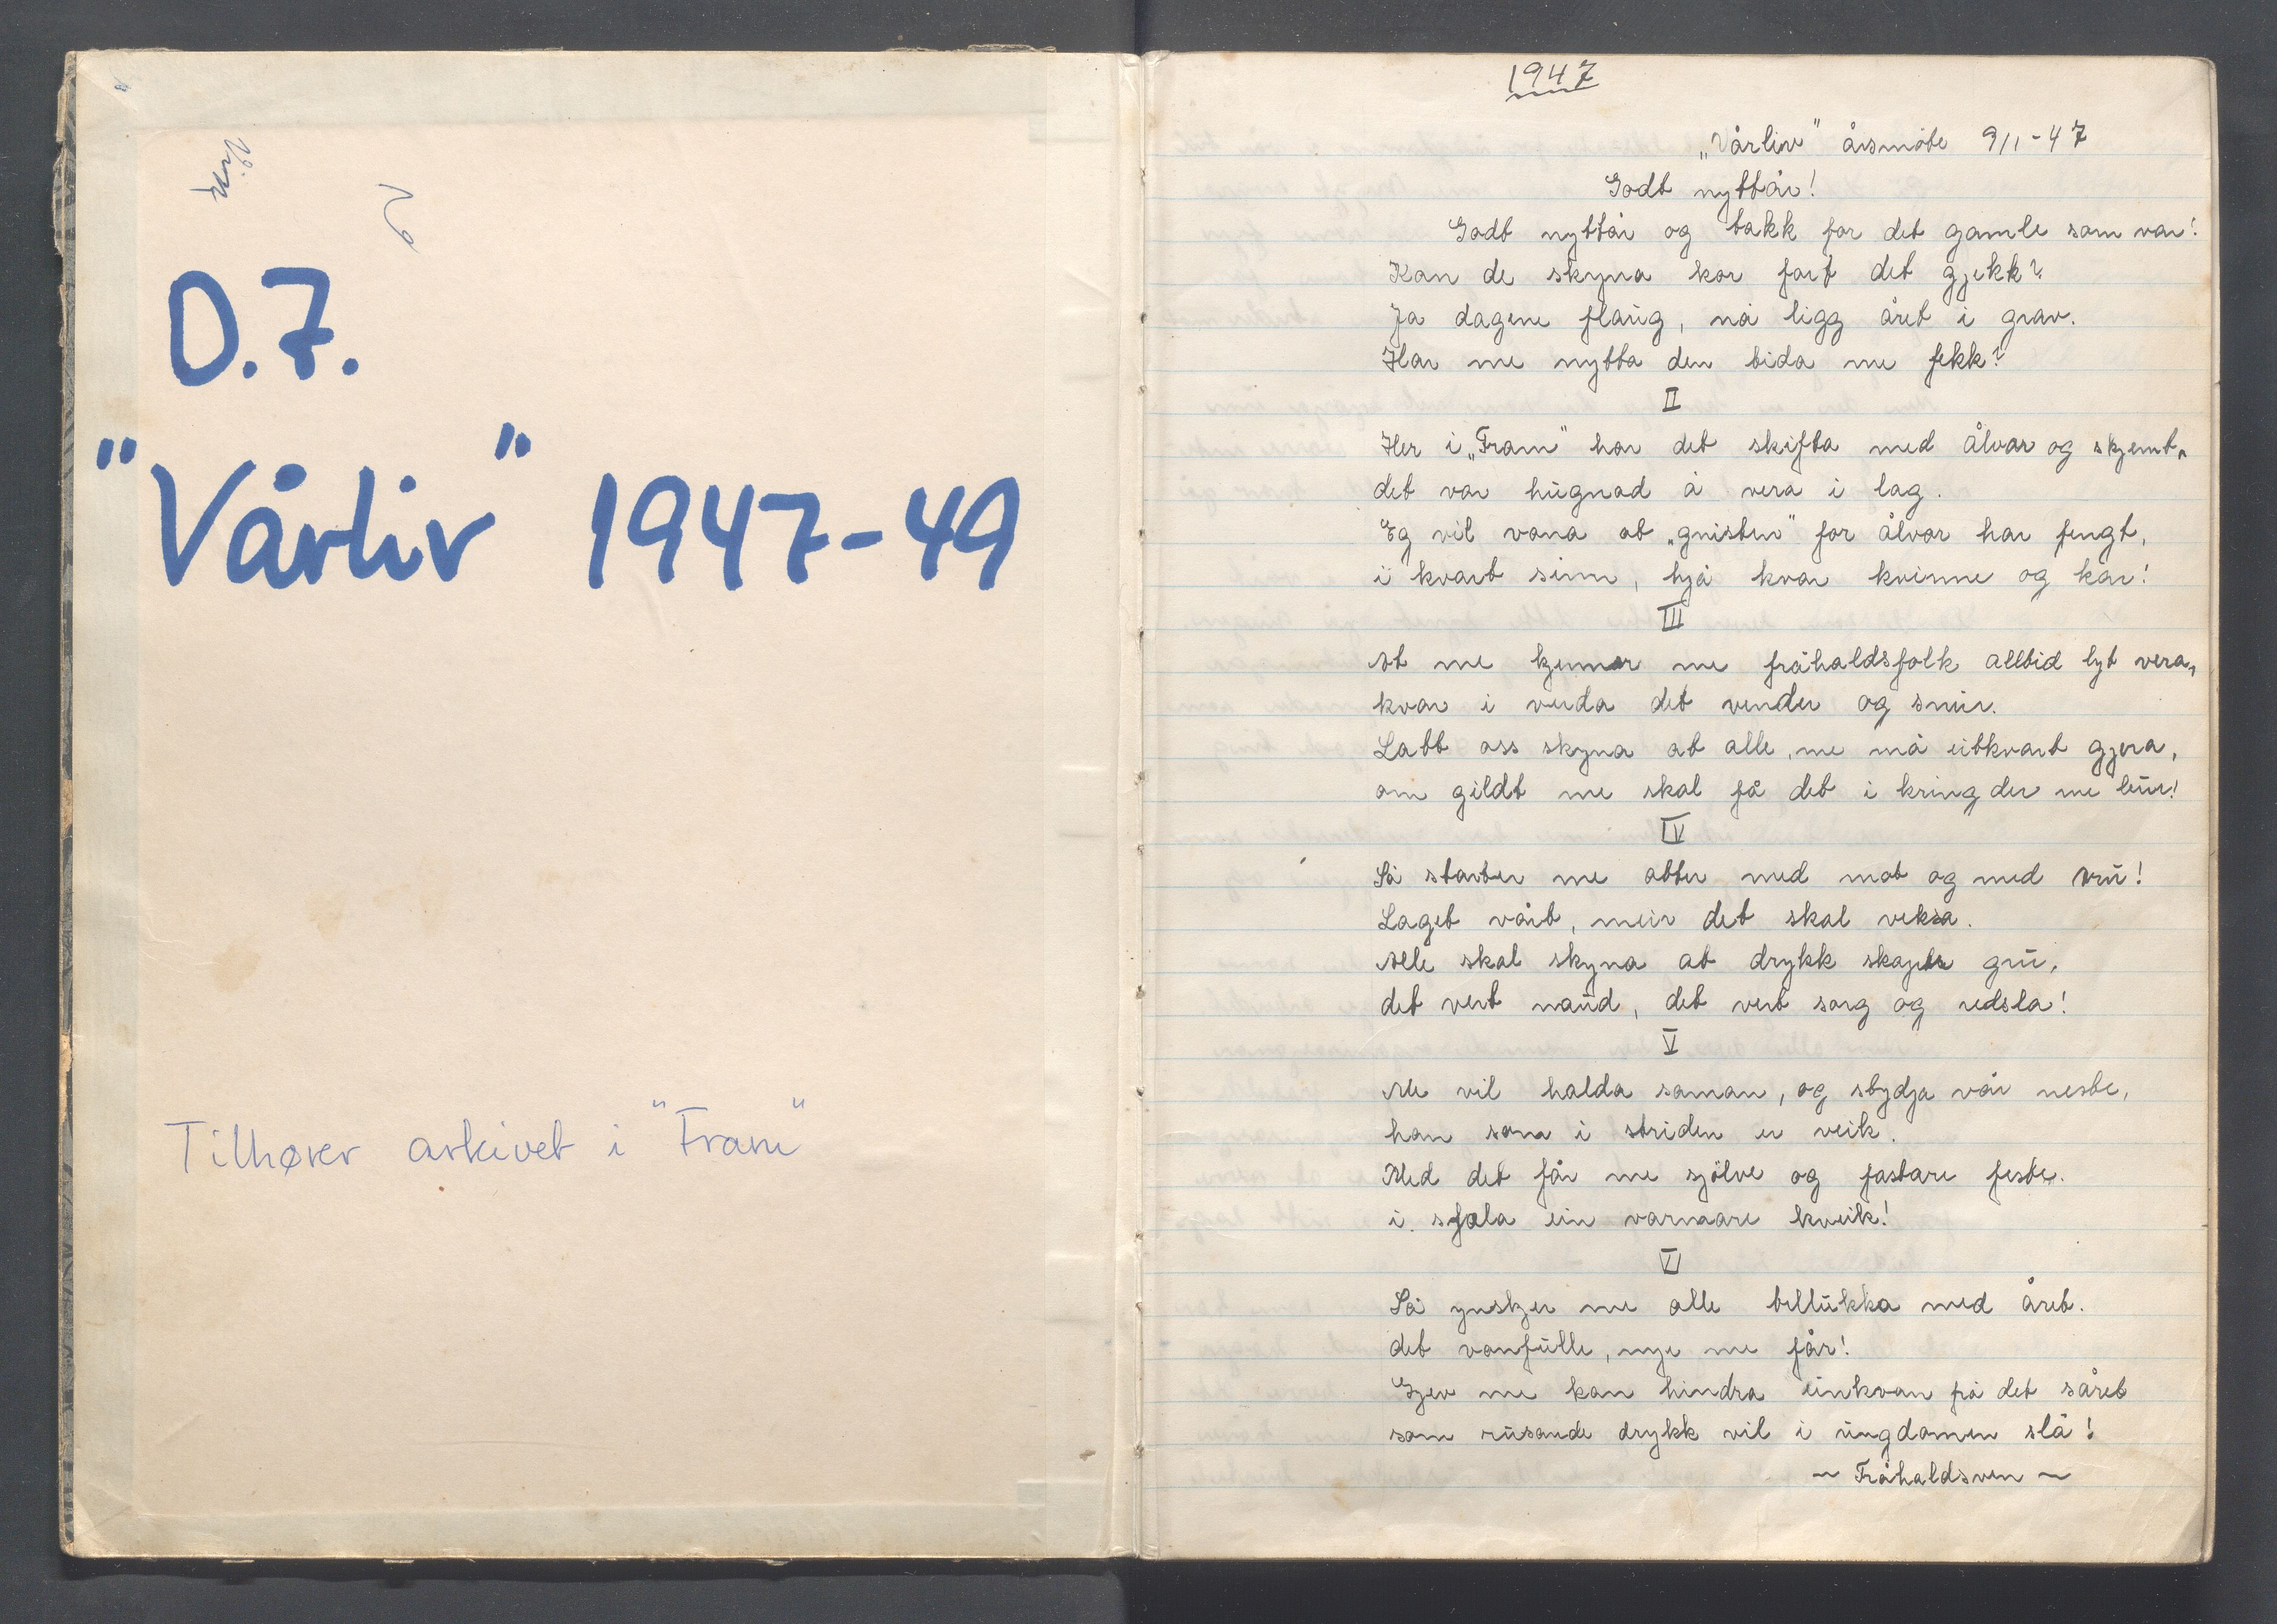 D.7.
"Vårliv" 1947-49
Tilhører arkivet i "Fram"
1947
„Vårliv" årsmöte 9/1-47
Godt nyttår!
Godt nyttår og takk for det gamle som var!
Kan de skyna kor fort det gjekk?
Ja dagene flaug, nå ligg året i grav.
Har me nytta den tida me fekk?
II
Her i „Fram" har det skifta med ålvar og skjemt,
det var hugnad å vera i lag.
Eg vil vona at „gnisten" for ålvar har fengt,
i kvart sinn, hjå kvar kvinne og kar!
III
At me kjemar me fråhaldsfolk alltid lyt vera,
kvar i verda det vender og snur.
Latt oss skyna at alle, me må eitkvart gjera,
om gildt me skal få det i kring der me bur!
IV
Så starter me atter med mot og med tru!
Laget vårt, meir det skal veksa.
Alle skal skyna at drykk skaper gru,
det vert naud, det vert sorg og redsla!
V
Me vil halda saman, og stydja vår neste,
han som i striden er veik.
Med det får me sjölve og fastare feste.
i sjela ein varmare kveik!
VI
Så ynskjer me alle tillukka med året.
det vonfulle, nye me får!
Gjev me kan hindra einkvan frå det såret
som rusande drykk vil i ungdomen slå!
~ Fråhaldsven ~